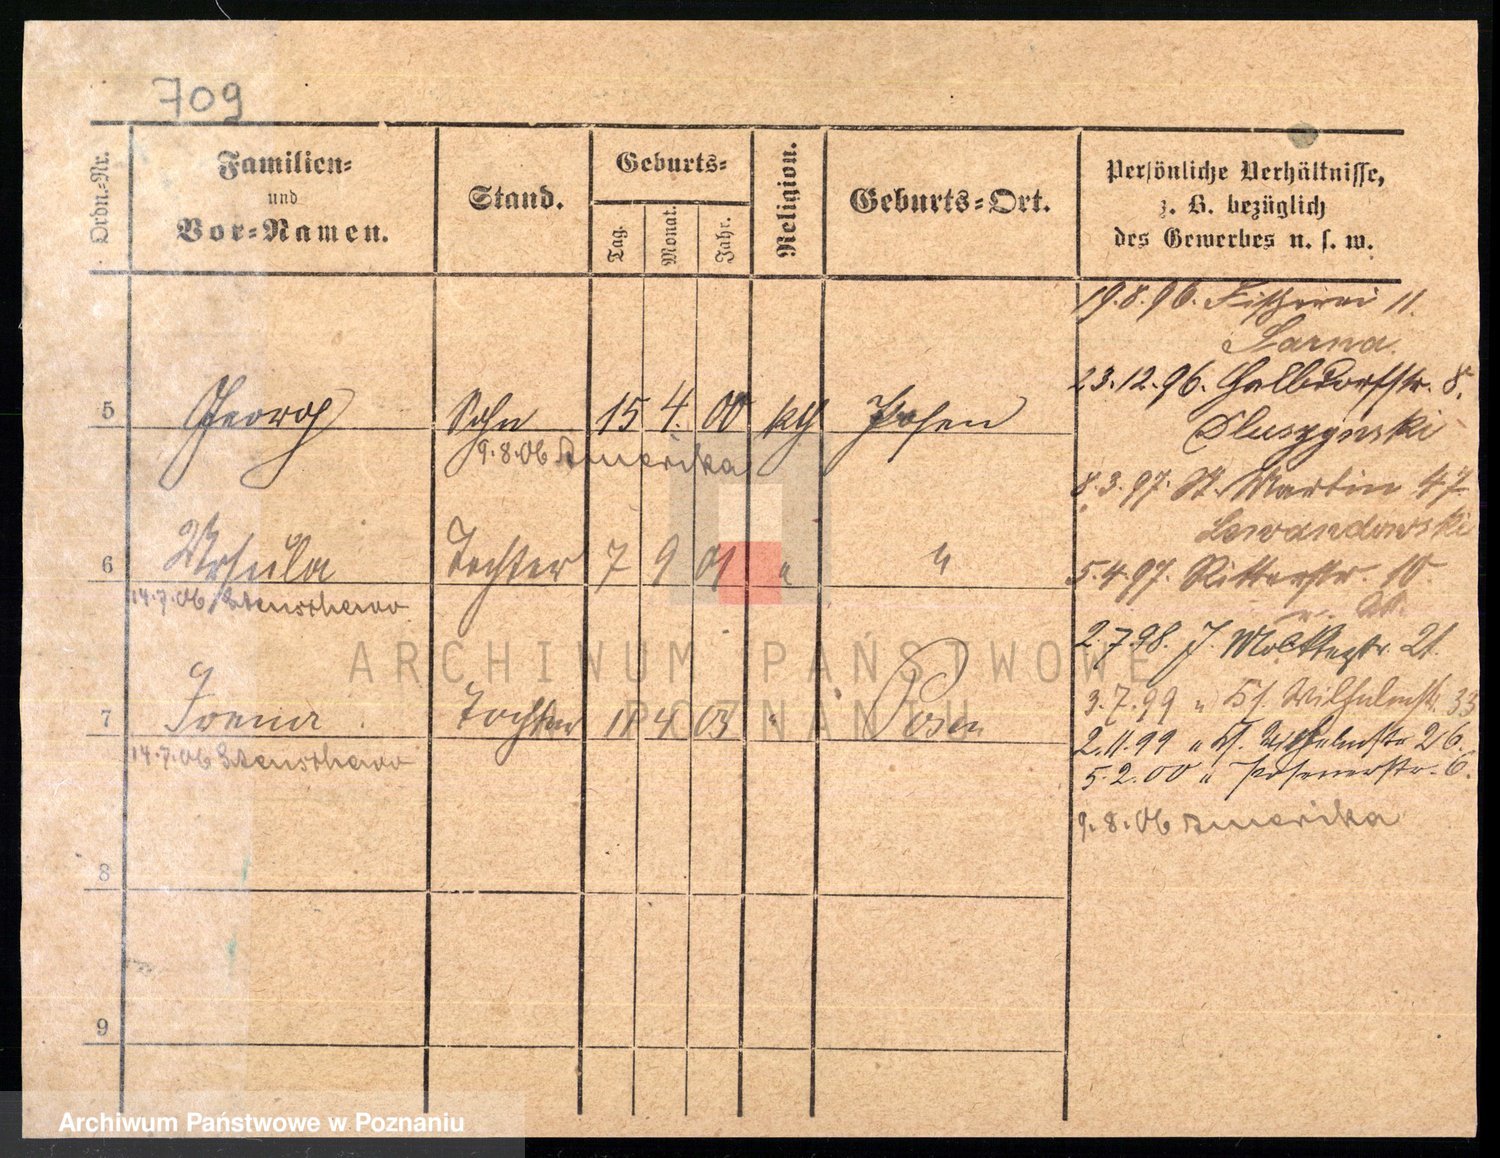 709
Ordn.-Nr.
Familien-
und
Vor-Namen.
Stand.
Geburts-
Tag.
Monat.
Jahr.
Religion.
Geburts-Ort.
Persönliche Verhältnisse,
z. B. bezüglich
des Gewerbes u. s. w.
5 Georg Sohn 15 4. 00 kth Posen
9.8.06 Amerika
6 Ursula Tochter 7 9 01 " "
14.7.06
7 Irena Tochter 11 4 03 " Posen
14.7.06
8
9
19.8.96. Fischerei 11.
Sarna.
23.12.96. Halbdorfstr. 8.
Dluszynski
8.3.97. St. Martin 47
Lewandowski
5.4.97. Ritterstr. 10.
2.7.98. J. Moltkestr. 21.
3.7.99 " Kl. Wilhelmstr. 33
2.11.99 " Kl. Wilhelmstr 26.
5.2.00 " Posenerstr. 6.
9.8.06 Amerika
ARCHIWUM PAŃSTWOWE
POZNANIU
Archiwum Państwowe w Poznaniu